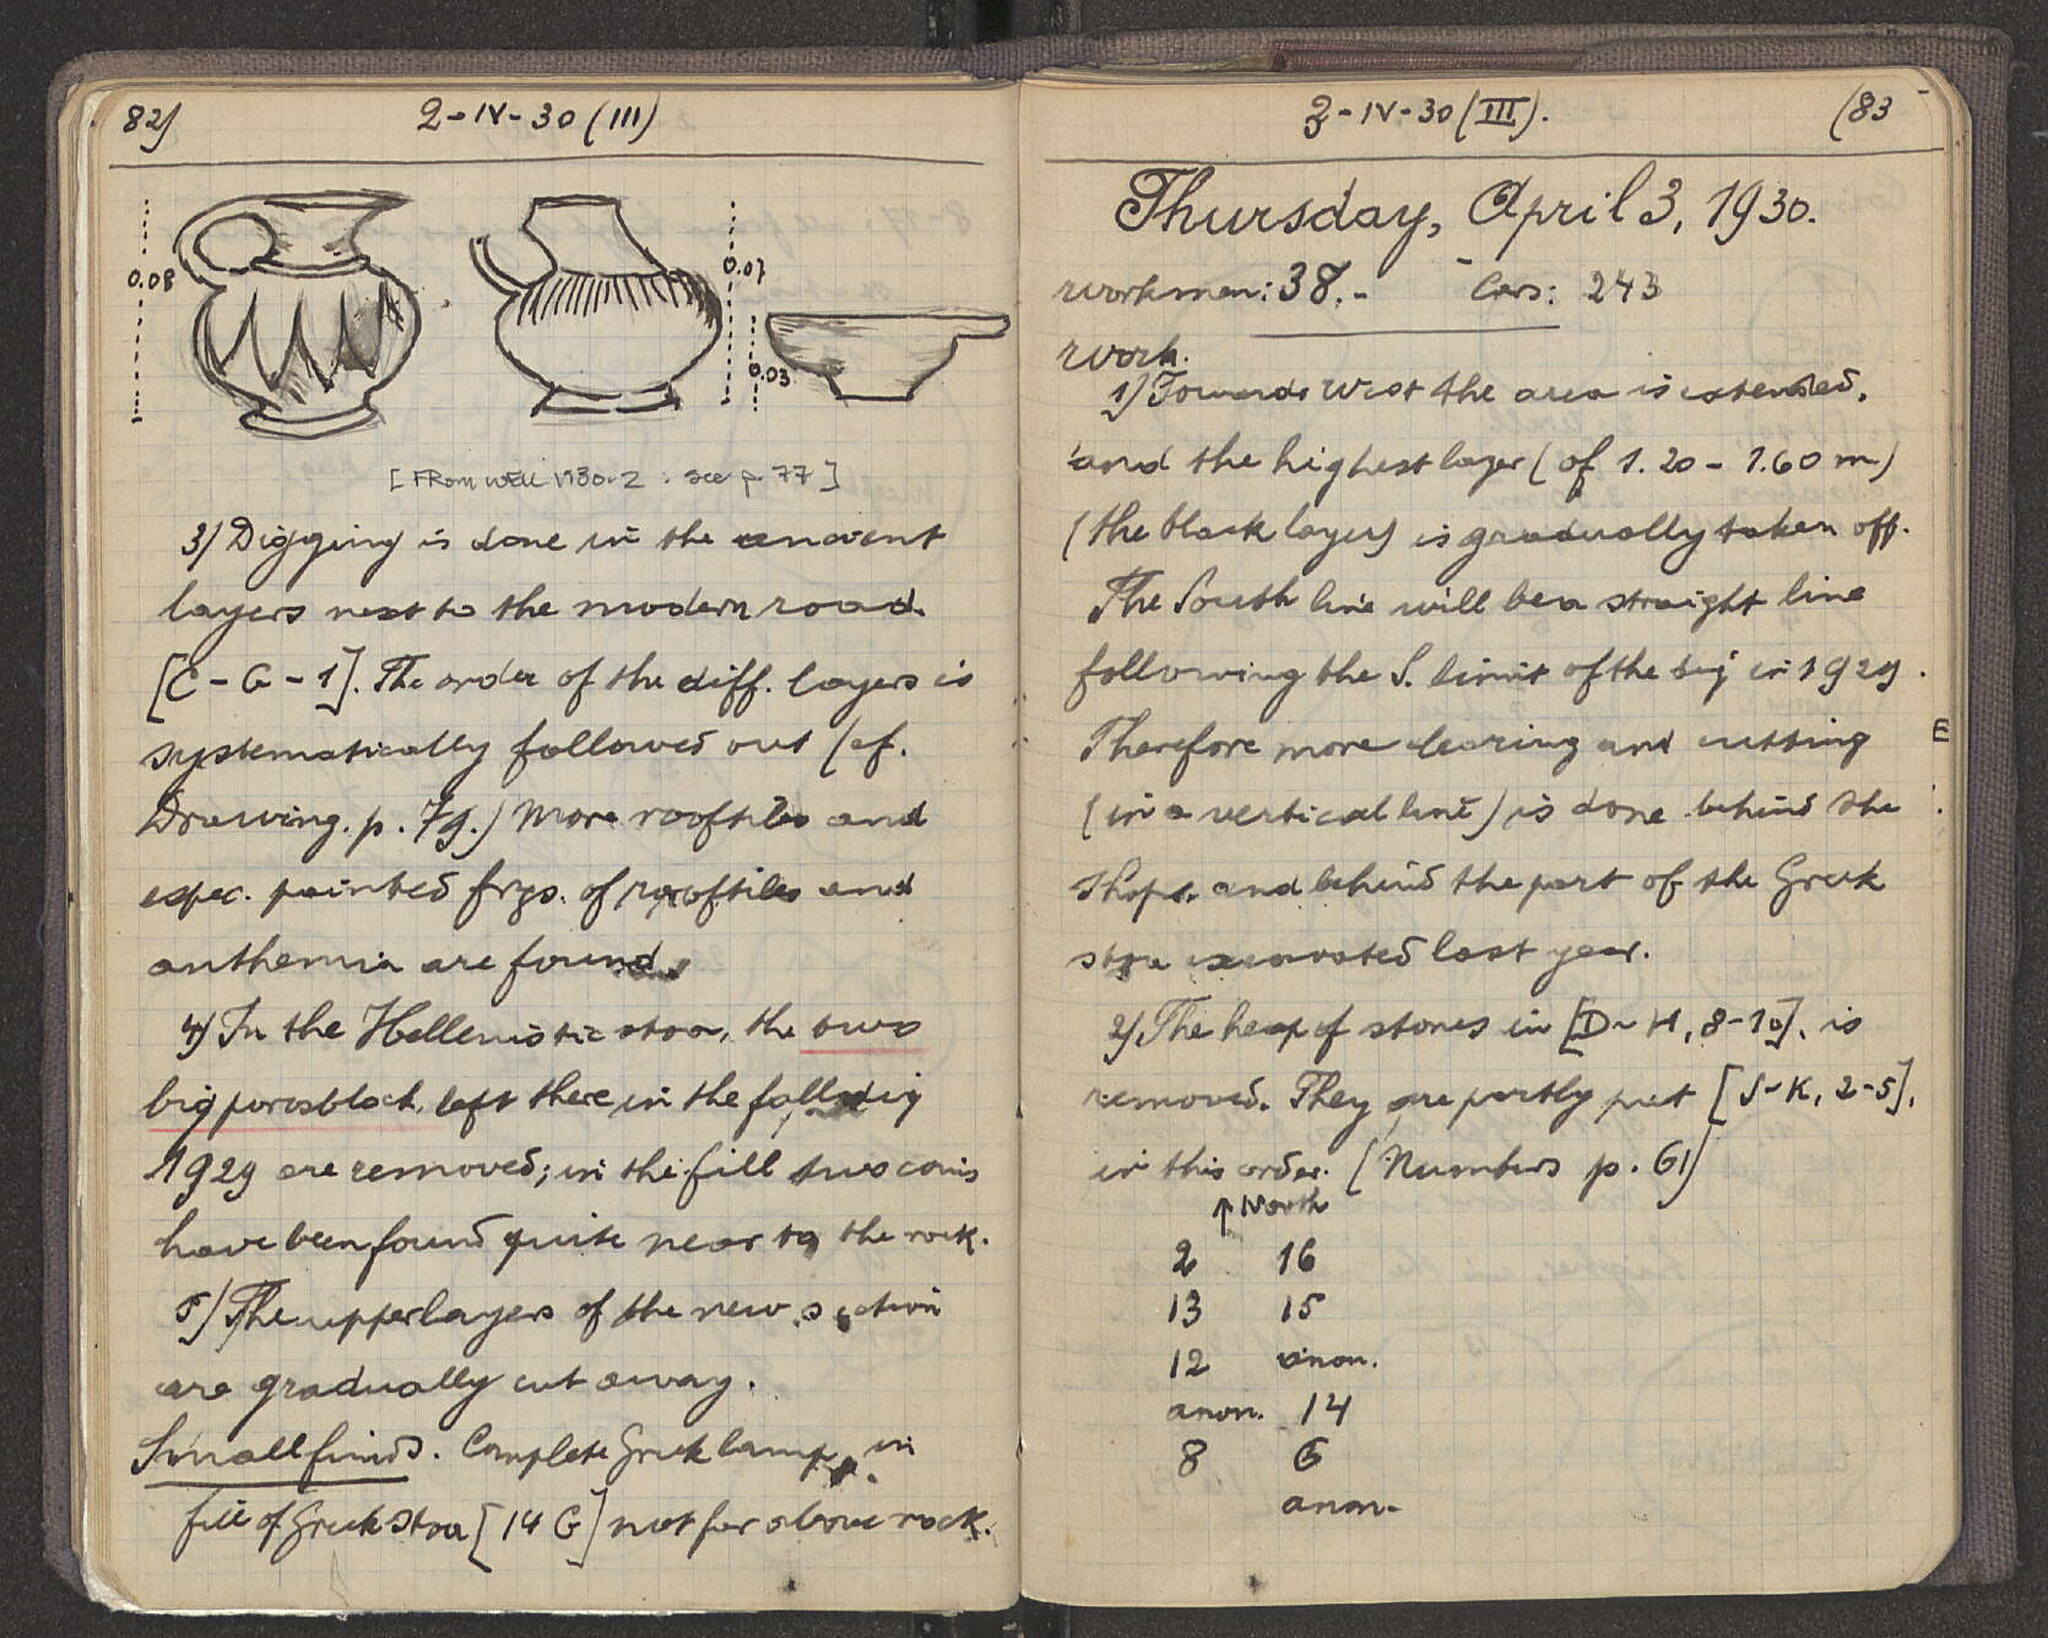 82)
2-IV-30 (III)
0.08
0.07
0.03
[FROM WELL 1930-2 : see p. 77]
3) Digging is done in the ancient
layers next to the modern road.
[C-G-1]. The order of the diff. layers is
systematically followed out (cf.
Drawing. p. 79.) More rooftiles and
espec. painted frgs. of rooftiles and
anthemia are found.
4) In the Hellenistic stoa, the two
big poros block left there in the fall dig
1929 are removed; in the fill two coins
have been found quite near to the rock.
5) The upper layers of the new section
are gradually cut away.
Small finds. Complete Greek lamp in
fill of Greek Stoa [14 G] not far above rock.
3-IV-30 (III).
(83
Thursday, April 3, 1930.
workmen: 38.- Cars: 243
work.
1) Towards West the area is extended,
and the highest layer (of 1.20 - 1.60 m)
(the black layer) is gradually taken off.
The South line will be a straight line
following the S. limit of the dig in 1929.
Therefore more clearing and cutting
(in a vertical line) is done behind the
shops. and behind the part of the Greek
stoa excavated last year.
2) The heap of stones in [D-H, 8-10]. is
removed. They are partly put [J-K, 2-5],
in this order. (Numbers p. 61)
↑ North
2 16
13 15
12 anon.
anon. 14
8 6
anon.